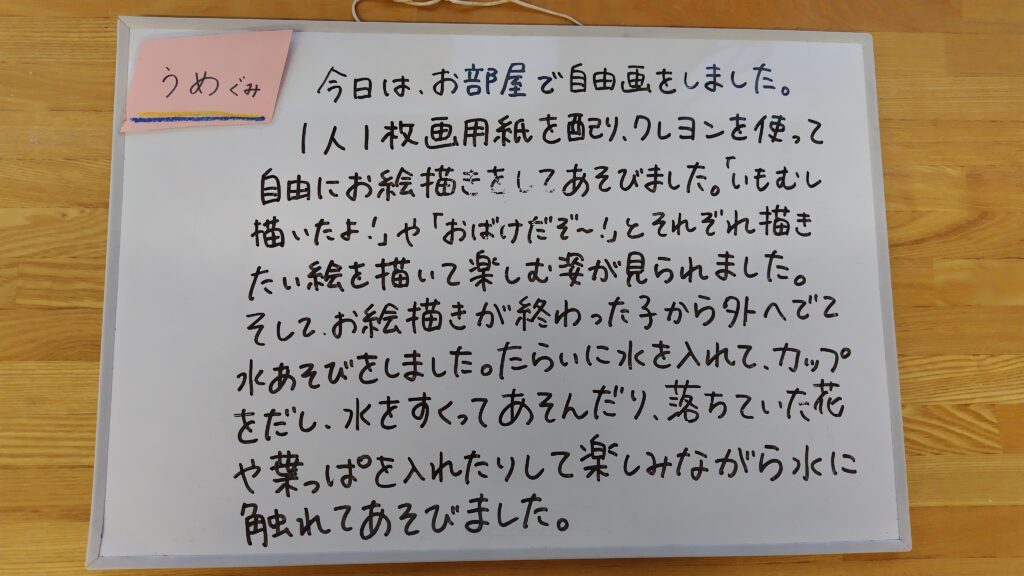 うめぐみ
今日は、お部屋で自由画をしました。
1人1枚画用紙を配り、クレヨンを使って
自由にお絵描きをしてあそびました。「いもむし
描いたよ!」や「おばけだぞ～!」とそれぞれ描き
たい絵を描いて楽しむ姿が見られました。
そして、お絵描きが終わった子から外へでて
水あそびをしました。たらいに水を入れて、カップ
をだし、水をすくってあそんだり、落ちていた花
や葉っぱを入れたりして楽しみながら水に
触れてあそびました。